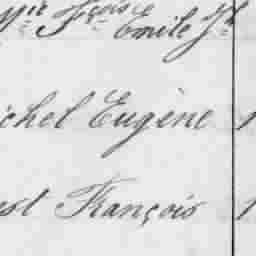 Mie Fçois Emile Jh
ichel Eugène
est François